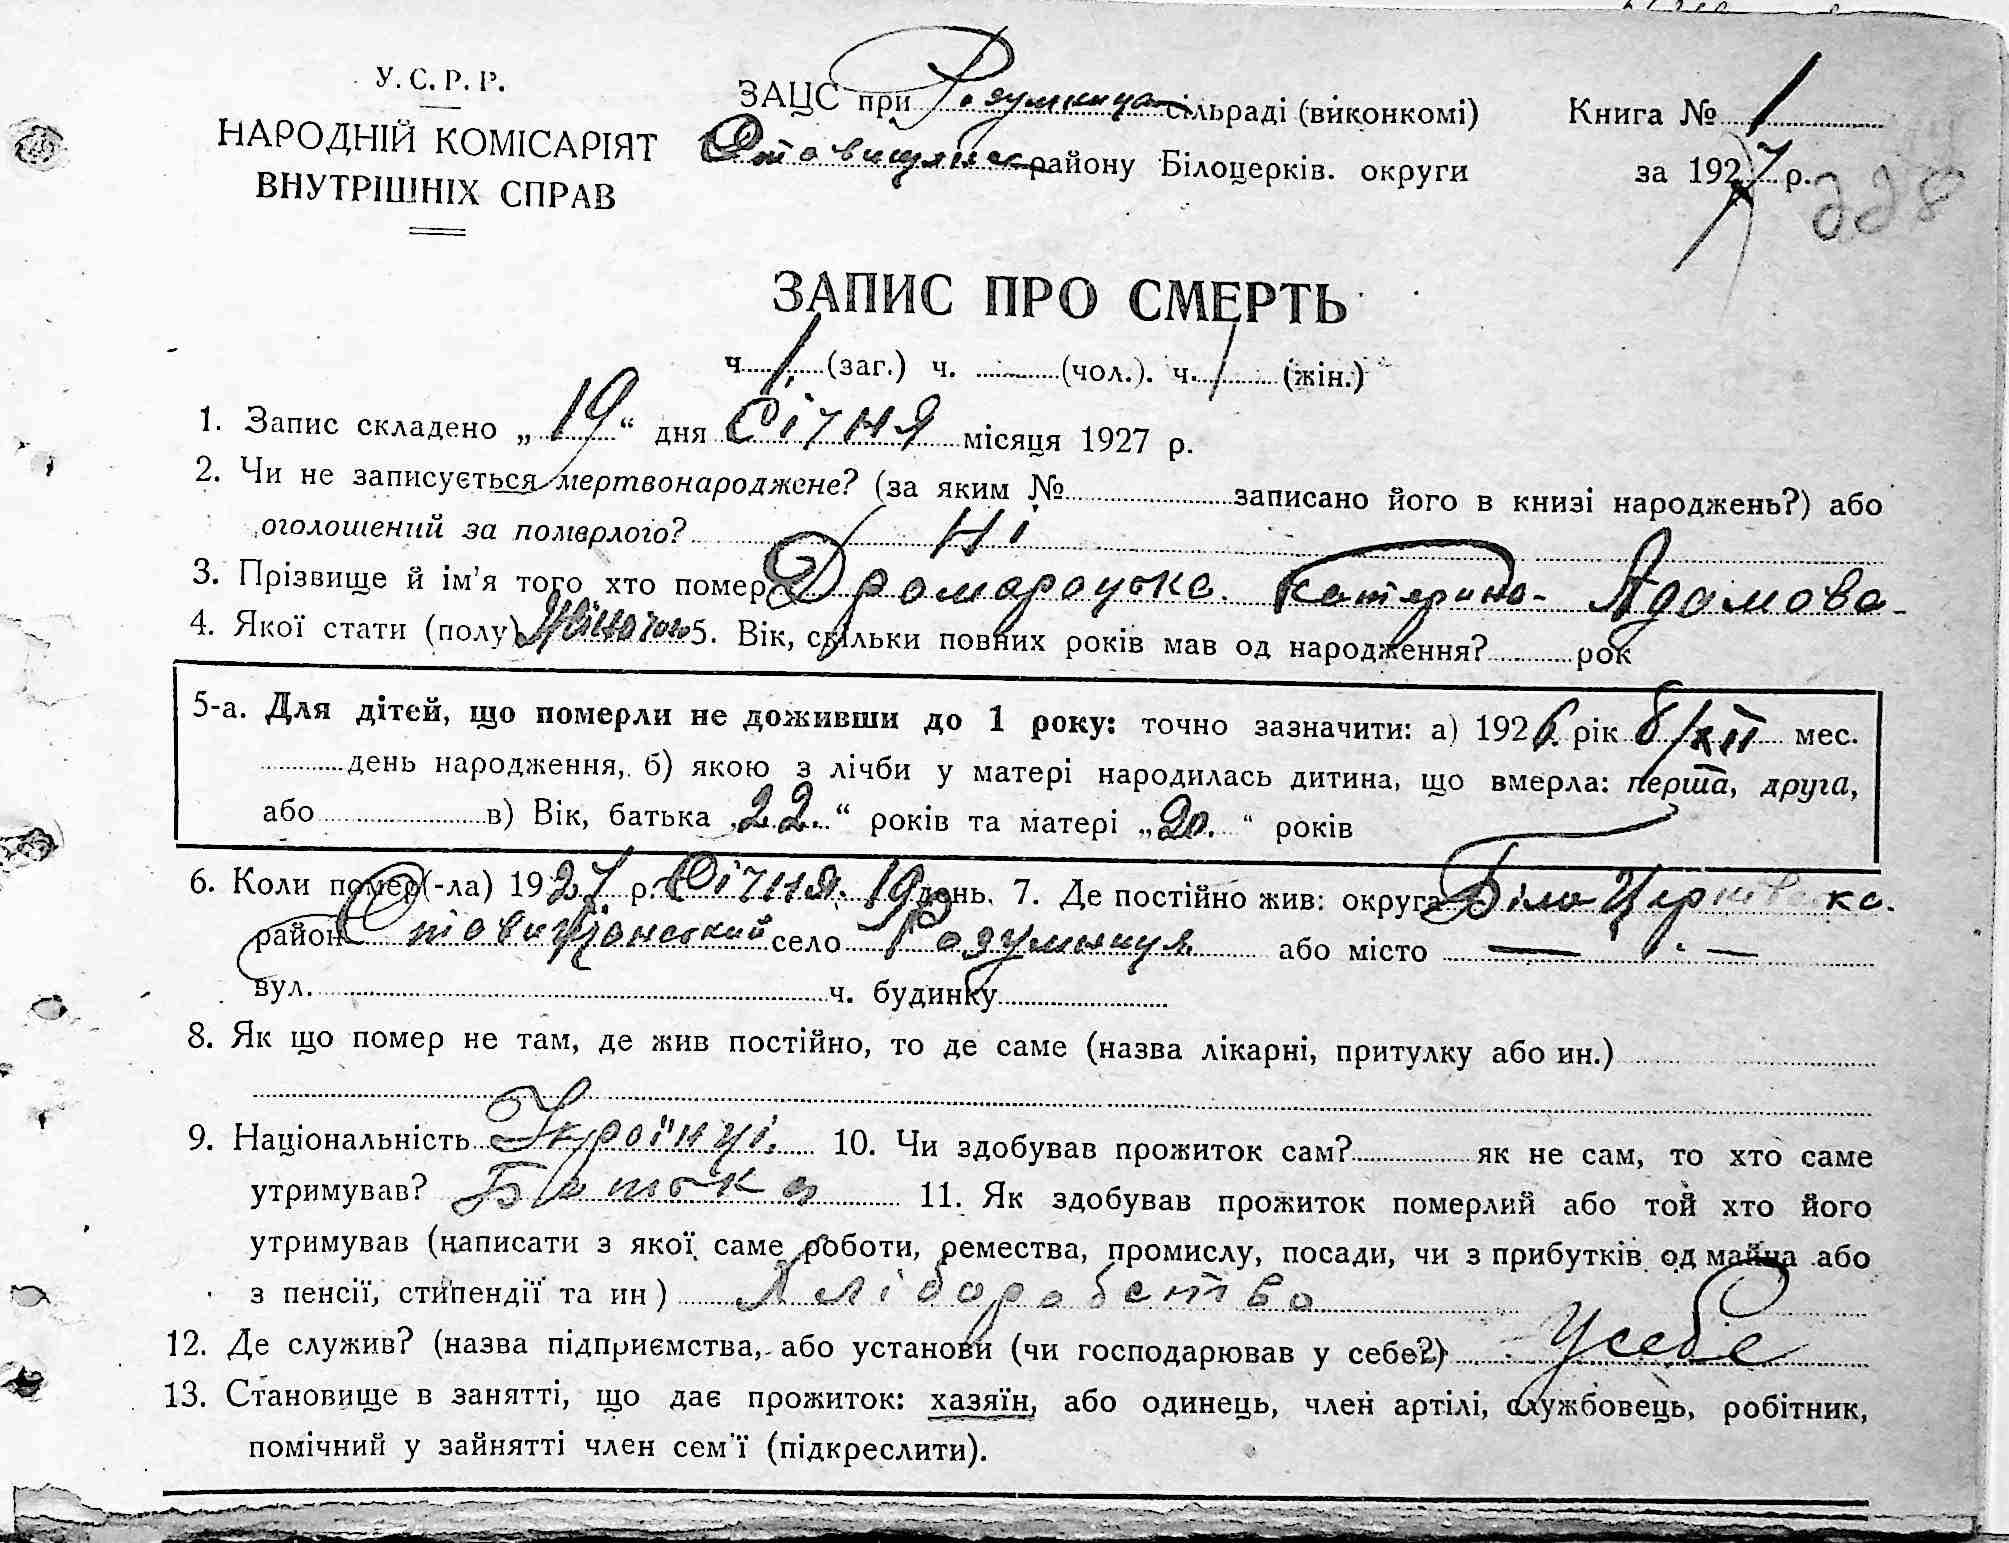 У.С.Р.Р.
НАРОДНІЙ КОМІСАРІЯТ
ВНУТРІШНІХ СПРАВ
ЗАЦС при Розумницькій сільраді (виконкомі)
районy Білоцерків. округи
Книга № 1
за 1927 р.
228
ЗАПИС ПРО СМЕРТЬ
ч. 1. (заг.) ч. — (чол.). ч. 1 (жін.)
1. Запис складено „ 19 “ дня Січня місяця 1927 р.
2. Чи не записується мертвонароджене? (за яким № записано його в книзі народжень?) або
оголошений за померлого? Ні
3. Прізвище й ім’я того хто помер Драмарецька Катерина Адамова
4. Якої стати (полу) Жіночого 5. Вік, скільки повних років мав од народження? рок
5-а. Для дітей, що померли не доживши до 1 року: точно зазначити: а) 1926 рік 8/XII мес.
день народження, б) якою з лічби у матері народилась дитина, що вмерла: перша, друга,
або в) Вік, батька „22.“ років та матері „20.“ років
6. Коли помер(-ла) 1927 р. Січня. 19 день. 7. Де постійно жив: округа Біло Церківська.
район Ставищанський село Розумниця або місто — . —
вул. ч. будинку
8. Як що помер не там, де жив постійно, то де саме (назва лікарні, притулку або ин.)
9. Національність Українці. 10. Чи здобував прожиток сам? як не сам, то хто саме
утримував? Батько 11. Як здобував прожиток померлий або той хто його
утримував (написати з якої саме роботи, ремества, промислу, посади, чи з прибутків од майна або
з пенсії, стипендії та ин) Хліборобство
12. Де служив? (назва підприємства, або установи (чи господарював у себе?) У себе
13. Становище в занятті, що дає прожиток: хазяїн, або одинець, член артілі, службовець, робітник,
помічний у зайнятті член сем’ї (підкреслити).